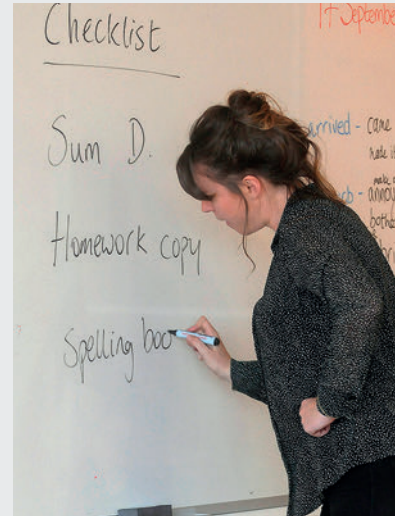 Checklist
Sum D.
Homework copy
Spelling boo
17 September
arrived - came
made it